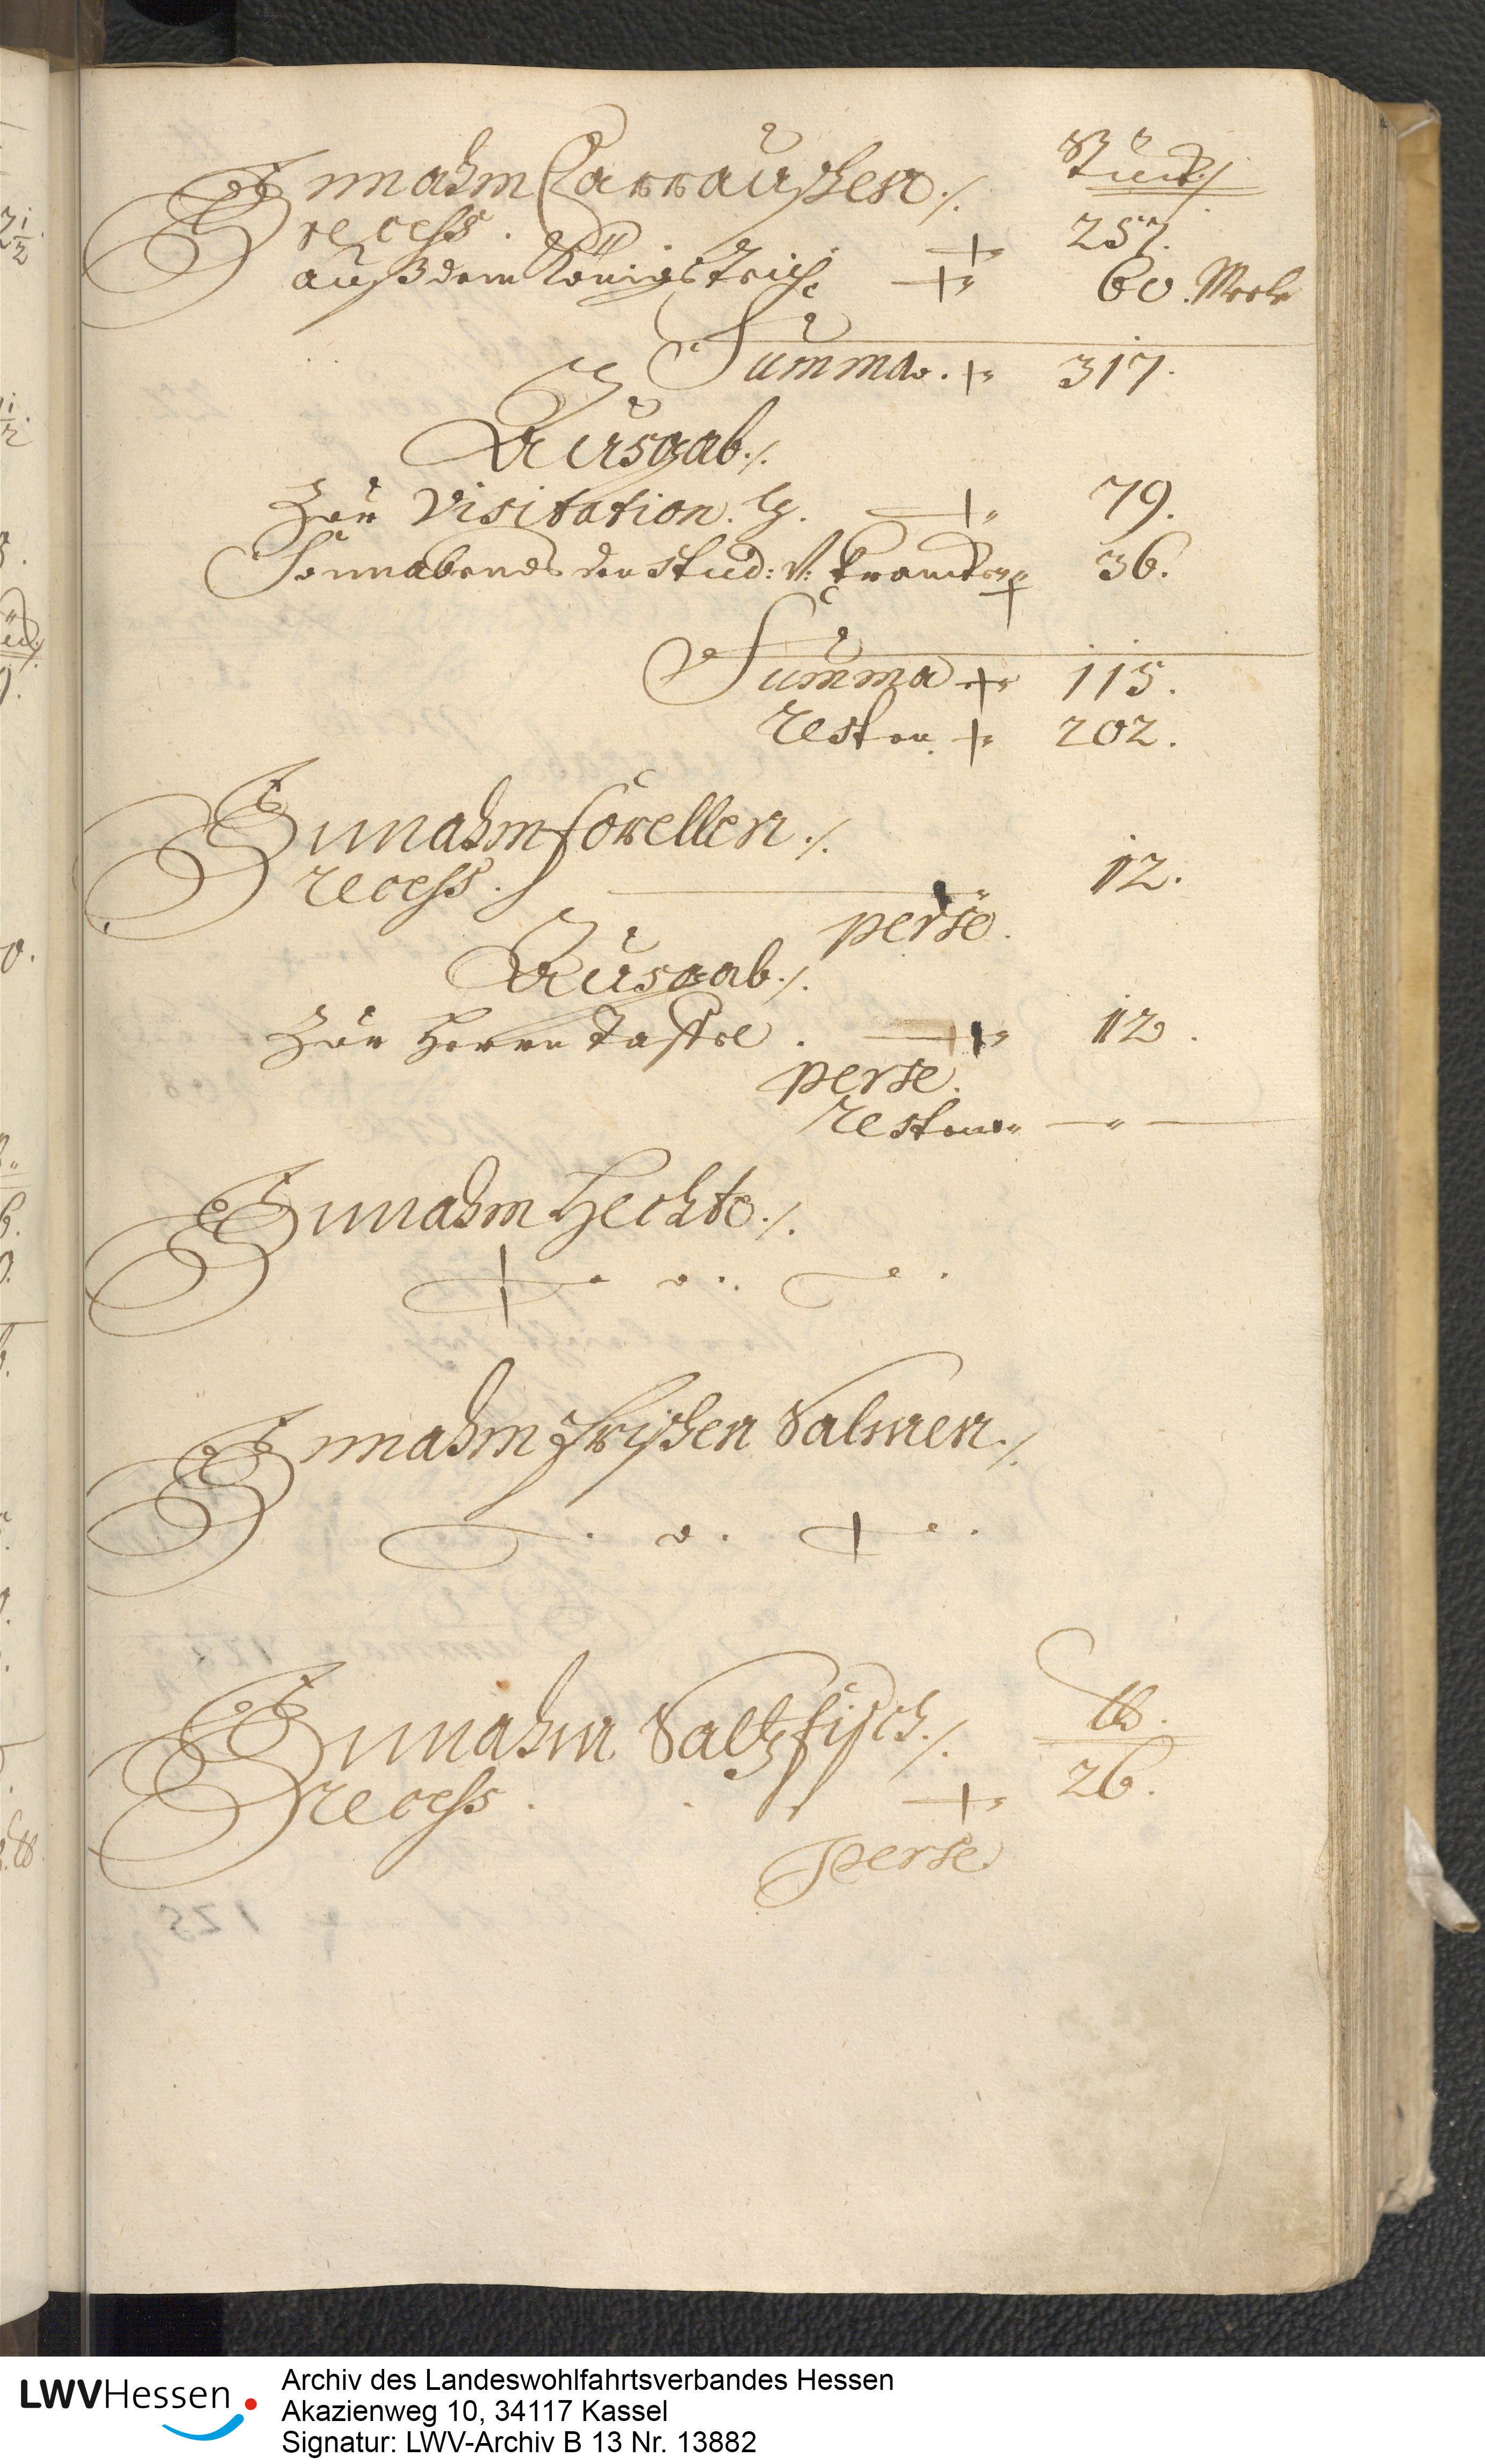 Stück ./.
Einnahm Carraußen ./.
recess . 257.
auß dem Königsteich 60.
Summa . 317.
Ausgab ./.
Zur Visitation. 79.
Sonnabends den Stud: V: Krancken 36.
Summa 115.
resten. 202.
Einnahm forellen ./.
recess . 12.
perse .
Ausgab ./.
Zur Herrn Taffel . 12 .
perse.
resten
Einnahm Hechte ./.
Einnahm Frischen Salmen ./.
℔.
Einnahm Saltzfisch ./.
recess . 26.
perse
LWVHessen
Archiv des Landeswohlfahrtsverbandes Hessen
Akazienweg 10, 34117 Kassel
Signatur: LWV-Archiv B 13 Nr. 13882